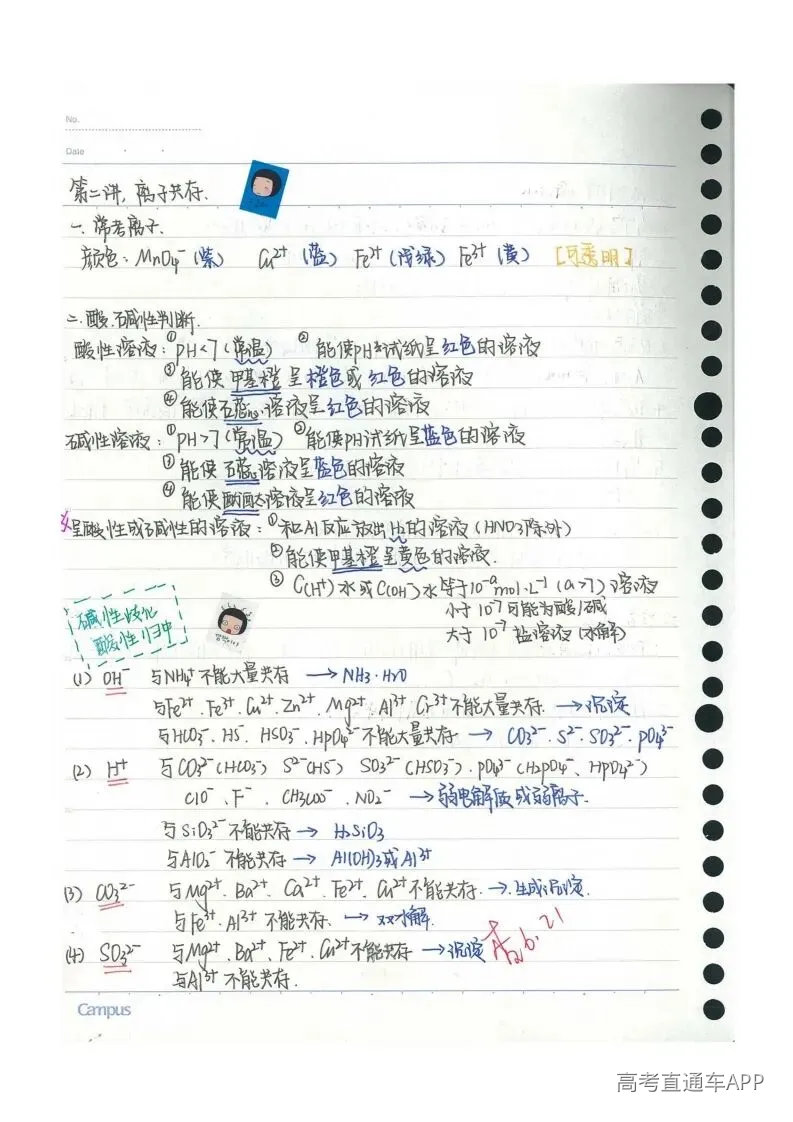 No.
Date
第二讲, 离子共存.
一. 常考离子.
颜色: MnO₄⁻ (紫) Cu²⁺ (蓝) Fe²⁺ (浅绿) Fe³⁺ (黄) [可透明]
二. 酸. 碱性判断.
酸性溶液: ① pH<7 (常温) ② 能使pH试纸呈红色的溶液
③ 能使甲基橙呈橙色或红色的溶液
④ 能使石蕊溶液呈红色的溶液
碱性溶液: ① pH>7 (常温) ② 能使pH试纸呈蓝色的溶液
③ 能使石蕊溶液呈蓝色的溶液
④ 能使酚酞溶液呈红色的溶液
呈酸性或碱性的溶液: ① 和Al反应放出H₂的溶液 (HNO₃除外)
② 能使甲基橙呈黄色的溶液.
③ C(H⁺)水 或 C(OH⁻)水 等于10⁻ᵃ mol·L⁻¹ (a>7) 溶液
小于 10⁻⁷ 可能为酸/碱
大于 10⁻⁷ 盐溶液 (水解)
碱性歧化
酸性归中
(1) OH⁻ 与NH₄⁺ 不能大量共存 → NH₃·H₂O
与Fe²⁺. Fe³⁺. Cu²⁺. Zn²⁺. Mg²⁺. Al³⁺. Cr³⁺不能大量共存. → 沉淀
与HCO₃⁻. HS⁻. HSO₃⁻. HPO₄²⁻不能大量共存 → CO₃²⁻. S²⁻. SO₃²⁻. PO₄³⁻
(2) H⁺ 与CO₃²⁻(HCO₃⁻) S²⁻(HS⁻) SO₃²⁻(HSO₃⁻). PO₄³⁻(H₂PO₄⁻、HPO₄²⁻)
ClO⁻、F⁻、CH₃COO⁻、NO₂⁻ → 弱电解质或弱离子.
与SiO₃²⁻ 不能共存 → H₂SiO₃
与AlO₂⁻ 不能共存 → Al(OH)₃或Al³⁺
(3) CO₃²⁻ 与Mg²⁺. Ba²⁺. Ca²⁺. Fe²⁺. Cu²⁺不能共存. → 生成沉淀.
与Fe³⁺. Al³⁺ 不能共存. → 双水解.
(4) SO₃²⁻ 与Mg²⁺. Ba²⁺、Fe²⁺. Cu²⁺不能共存 → 沉淀
6.21
与Al³⁺ 不能共存.
Campus
高考直通车APP